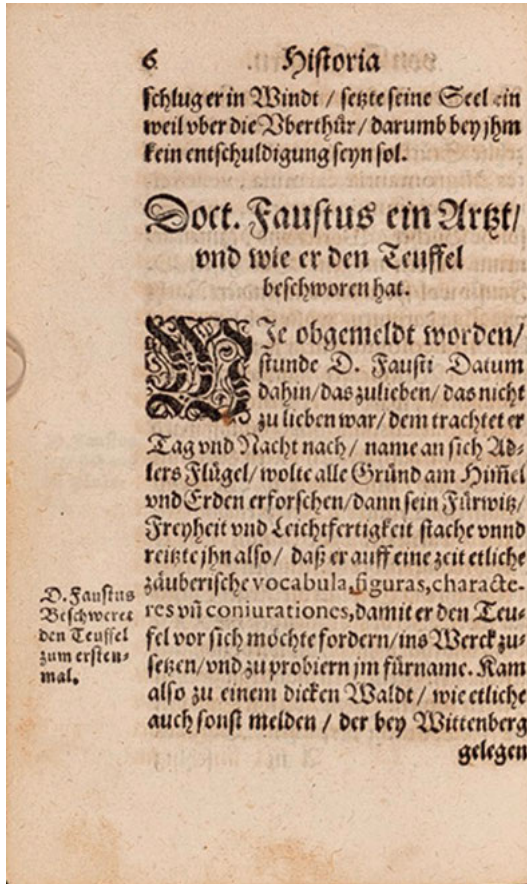 6 Historia
schlug er in Windt / setzte seine Seel ein
weil vber die Vberthür / darumb bey jhm
kein entschuldigung seyn sol.
Doct. Faustus ein Artzt/
vnd wie er den Teuffel
beschworen hat.
WIe obgemeldt worden/
stunde D. Fausti Datum
dahin/das zulieben/das nicht
zu lieben war/dem trachtet er
Tag vnd Nacht nach/ name an sich Ad-
lers Flügel/ wolte alle Gründ am Him̃el
vnd Erden erforschen/dann sein Fürwitz/
Freyheit vnd Leichtfertigkeit stache vnnd
reitzte jhn also/ daß er auff eine zeit etliche
zäuberische vocabula, figuras, characte-
res vñ coniurationes, damit er den Teu-
fel vor sich möchte fordern/ins Werck zu-
setzen/vnd zu probiern jm fürname. Kam
also zu einem dicken Waldt / wie etliche
auch sonst melden / der bey Wittenberg
gelegen
D. Faustus
Beschweret
den Teuffel
zum ersten-
mal.